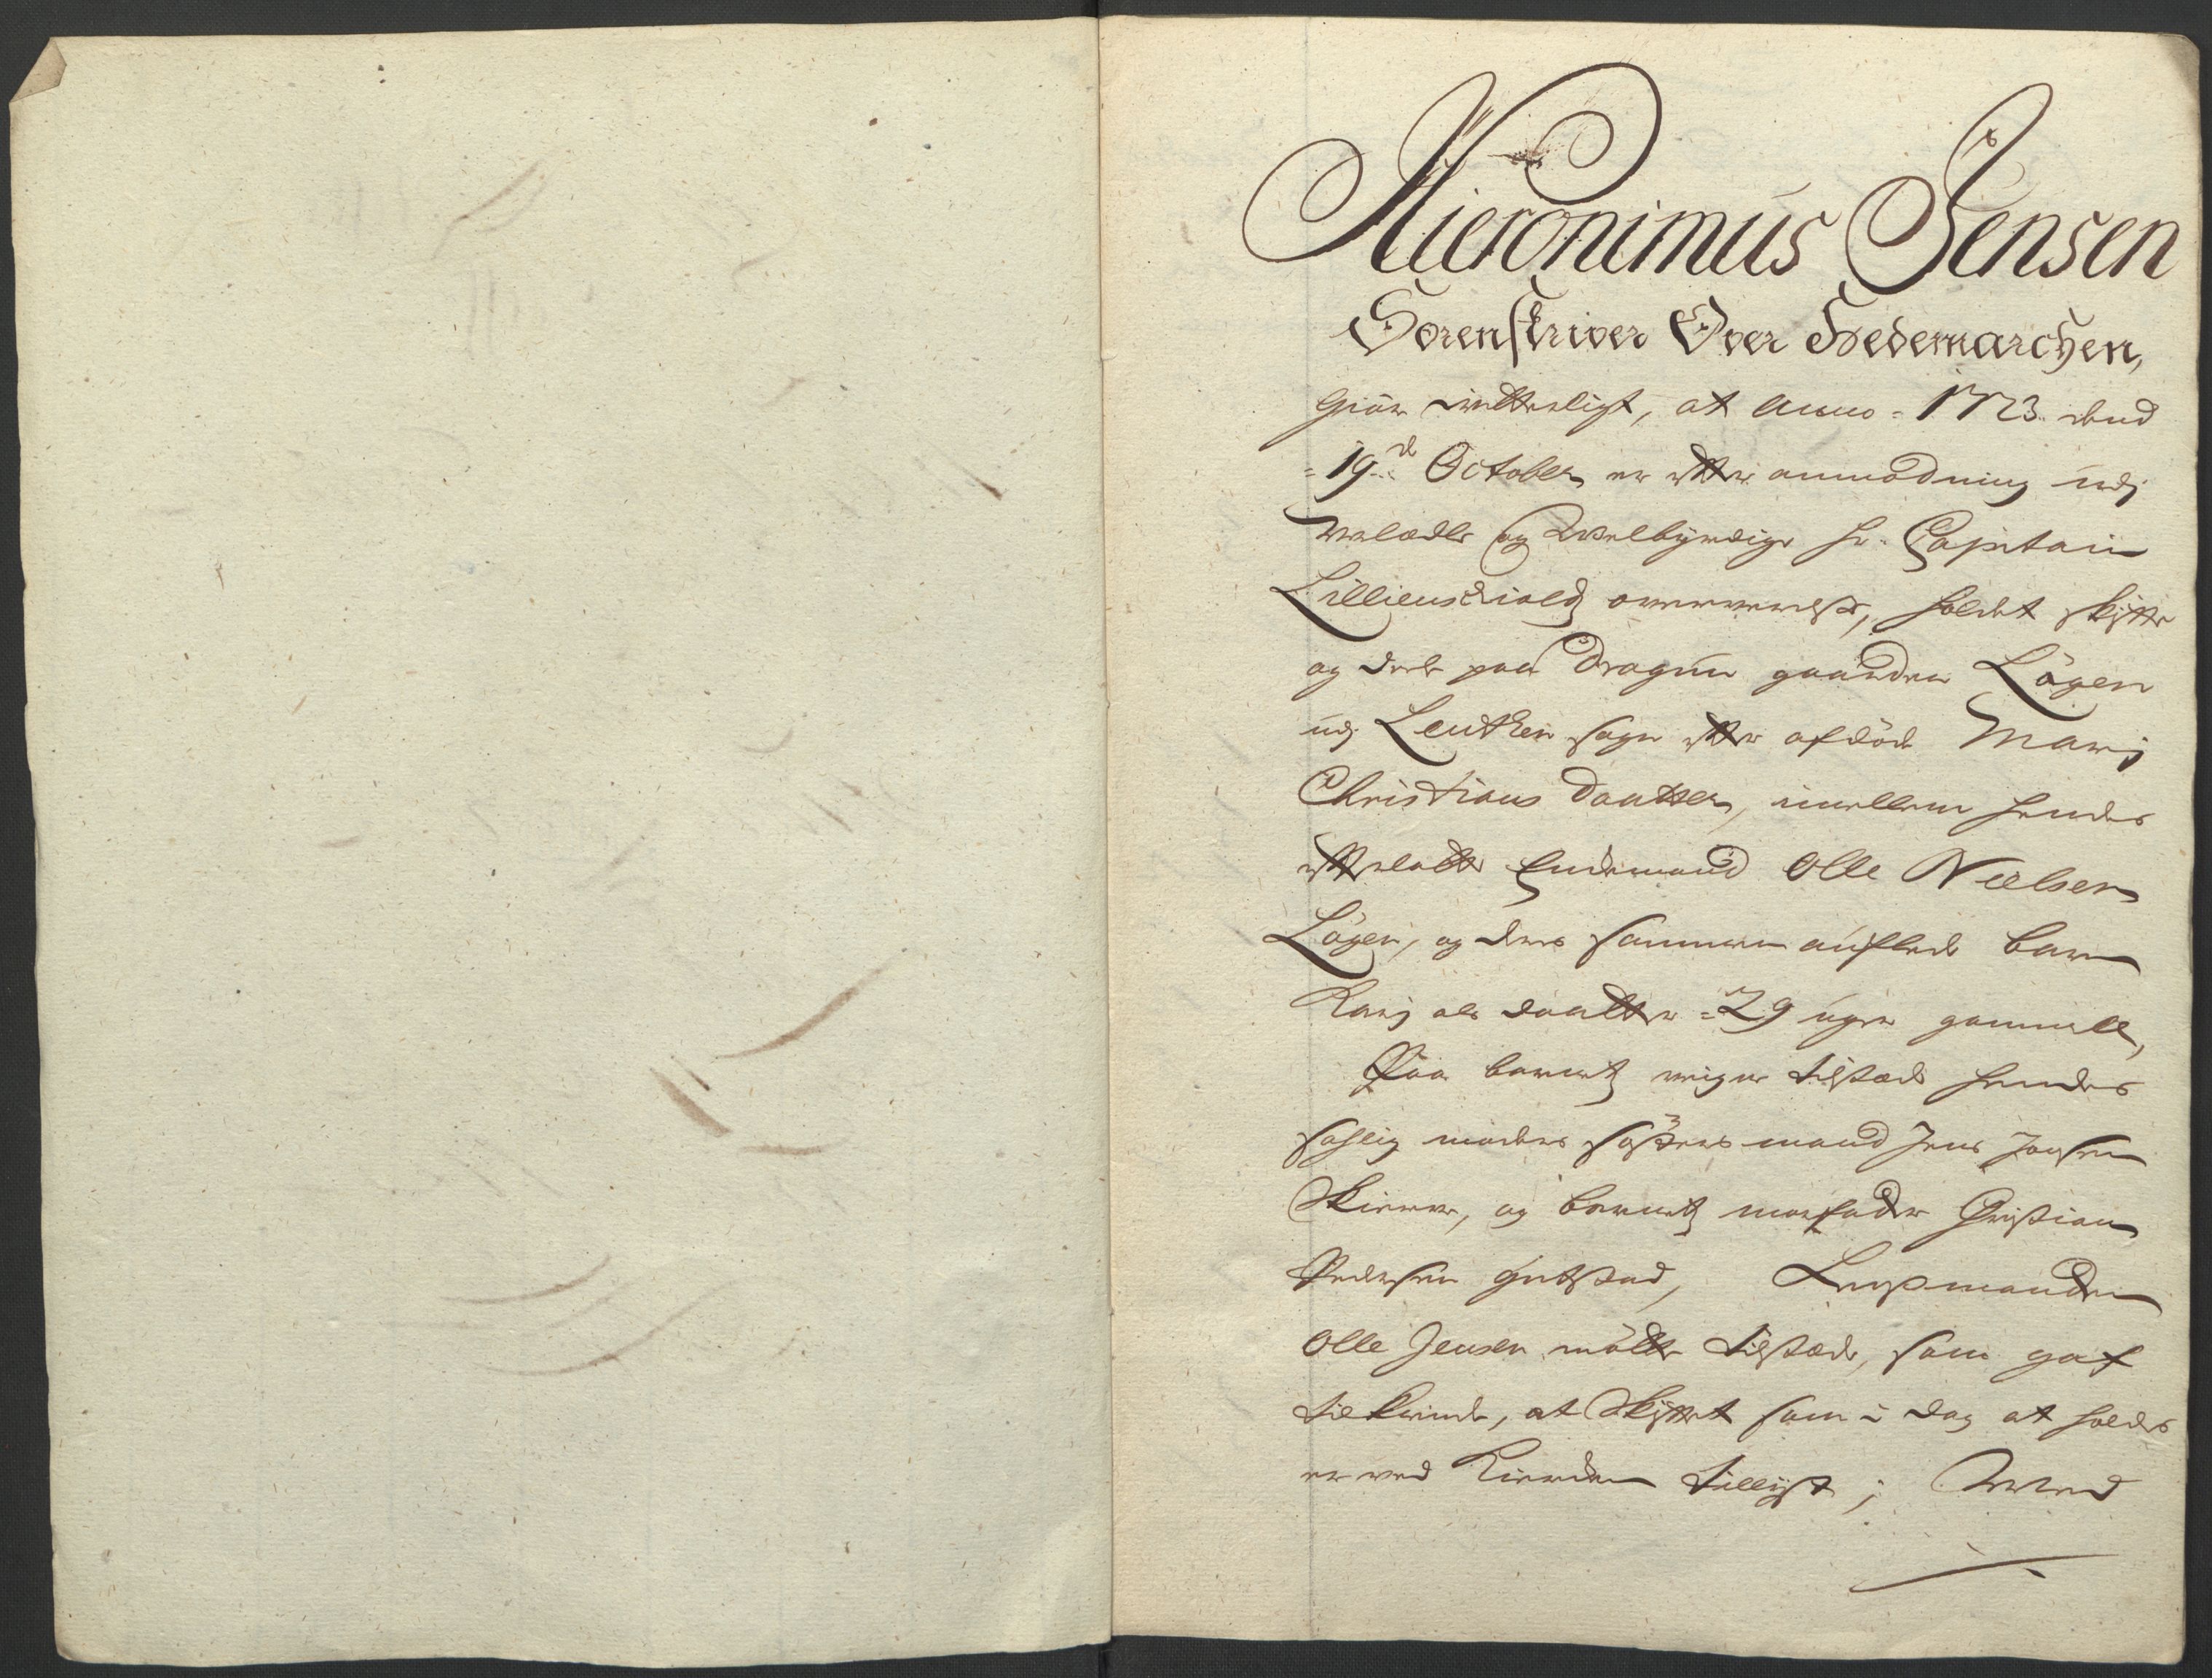 Hieronimus Jensen
Sorenskriver Over Hedemarchen,
Giør witterligt, at Anno 1723 dend
19.d October er effter anmodning udj
welædle og Welbyrdige Hr. Capitain
Lillienschiold overværelse, holdet skiffte
og deele paa Dragun gaarden Løgen
udj Leuthen sogn effter afdøde Marj
Christians Daatter, imellem hendes
effterladte Endemand Olle Nielsen
Løgen, og deris sammen auflede barn
Karj ald daatter 29 uger gammell,
Paa barnetz veigne tilstæde hendes
sahlig moders søsters mand Jens
og barnetz morfader Christian
Pedersen Lensmanden
Olle Jensen mødte tilstæde, som gaf
tilkiende, at Skifftet som i dag at holdes
er ved Kircken tillyst; Wed